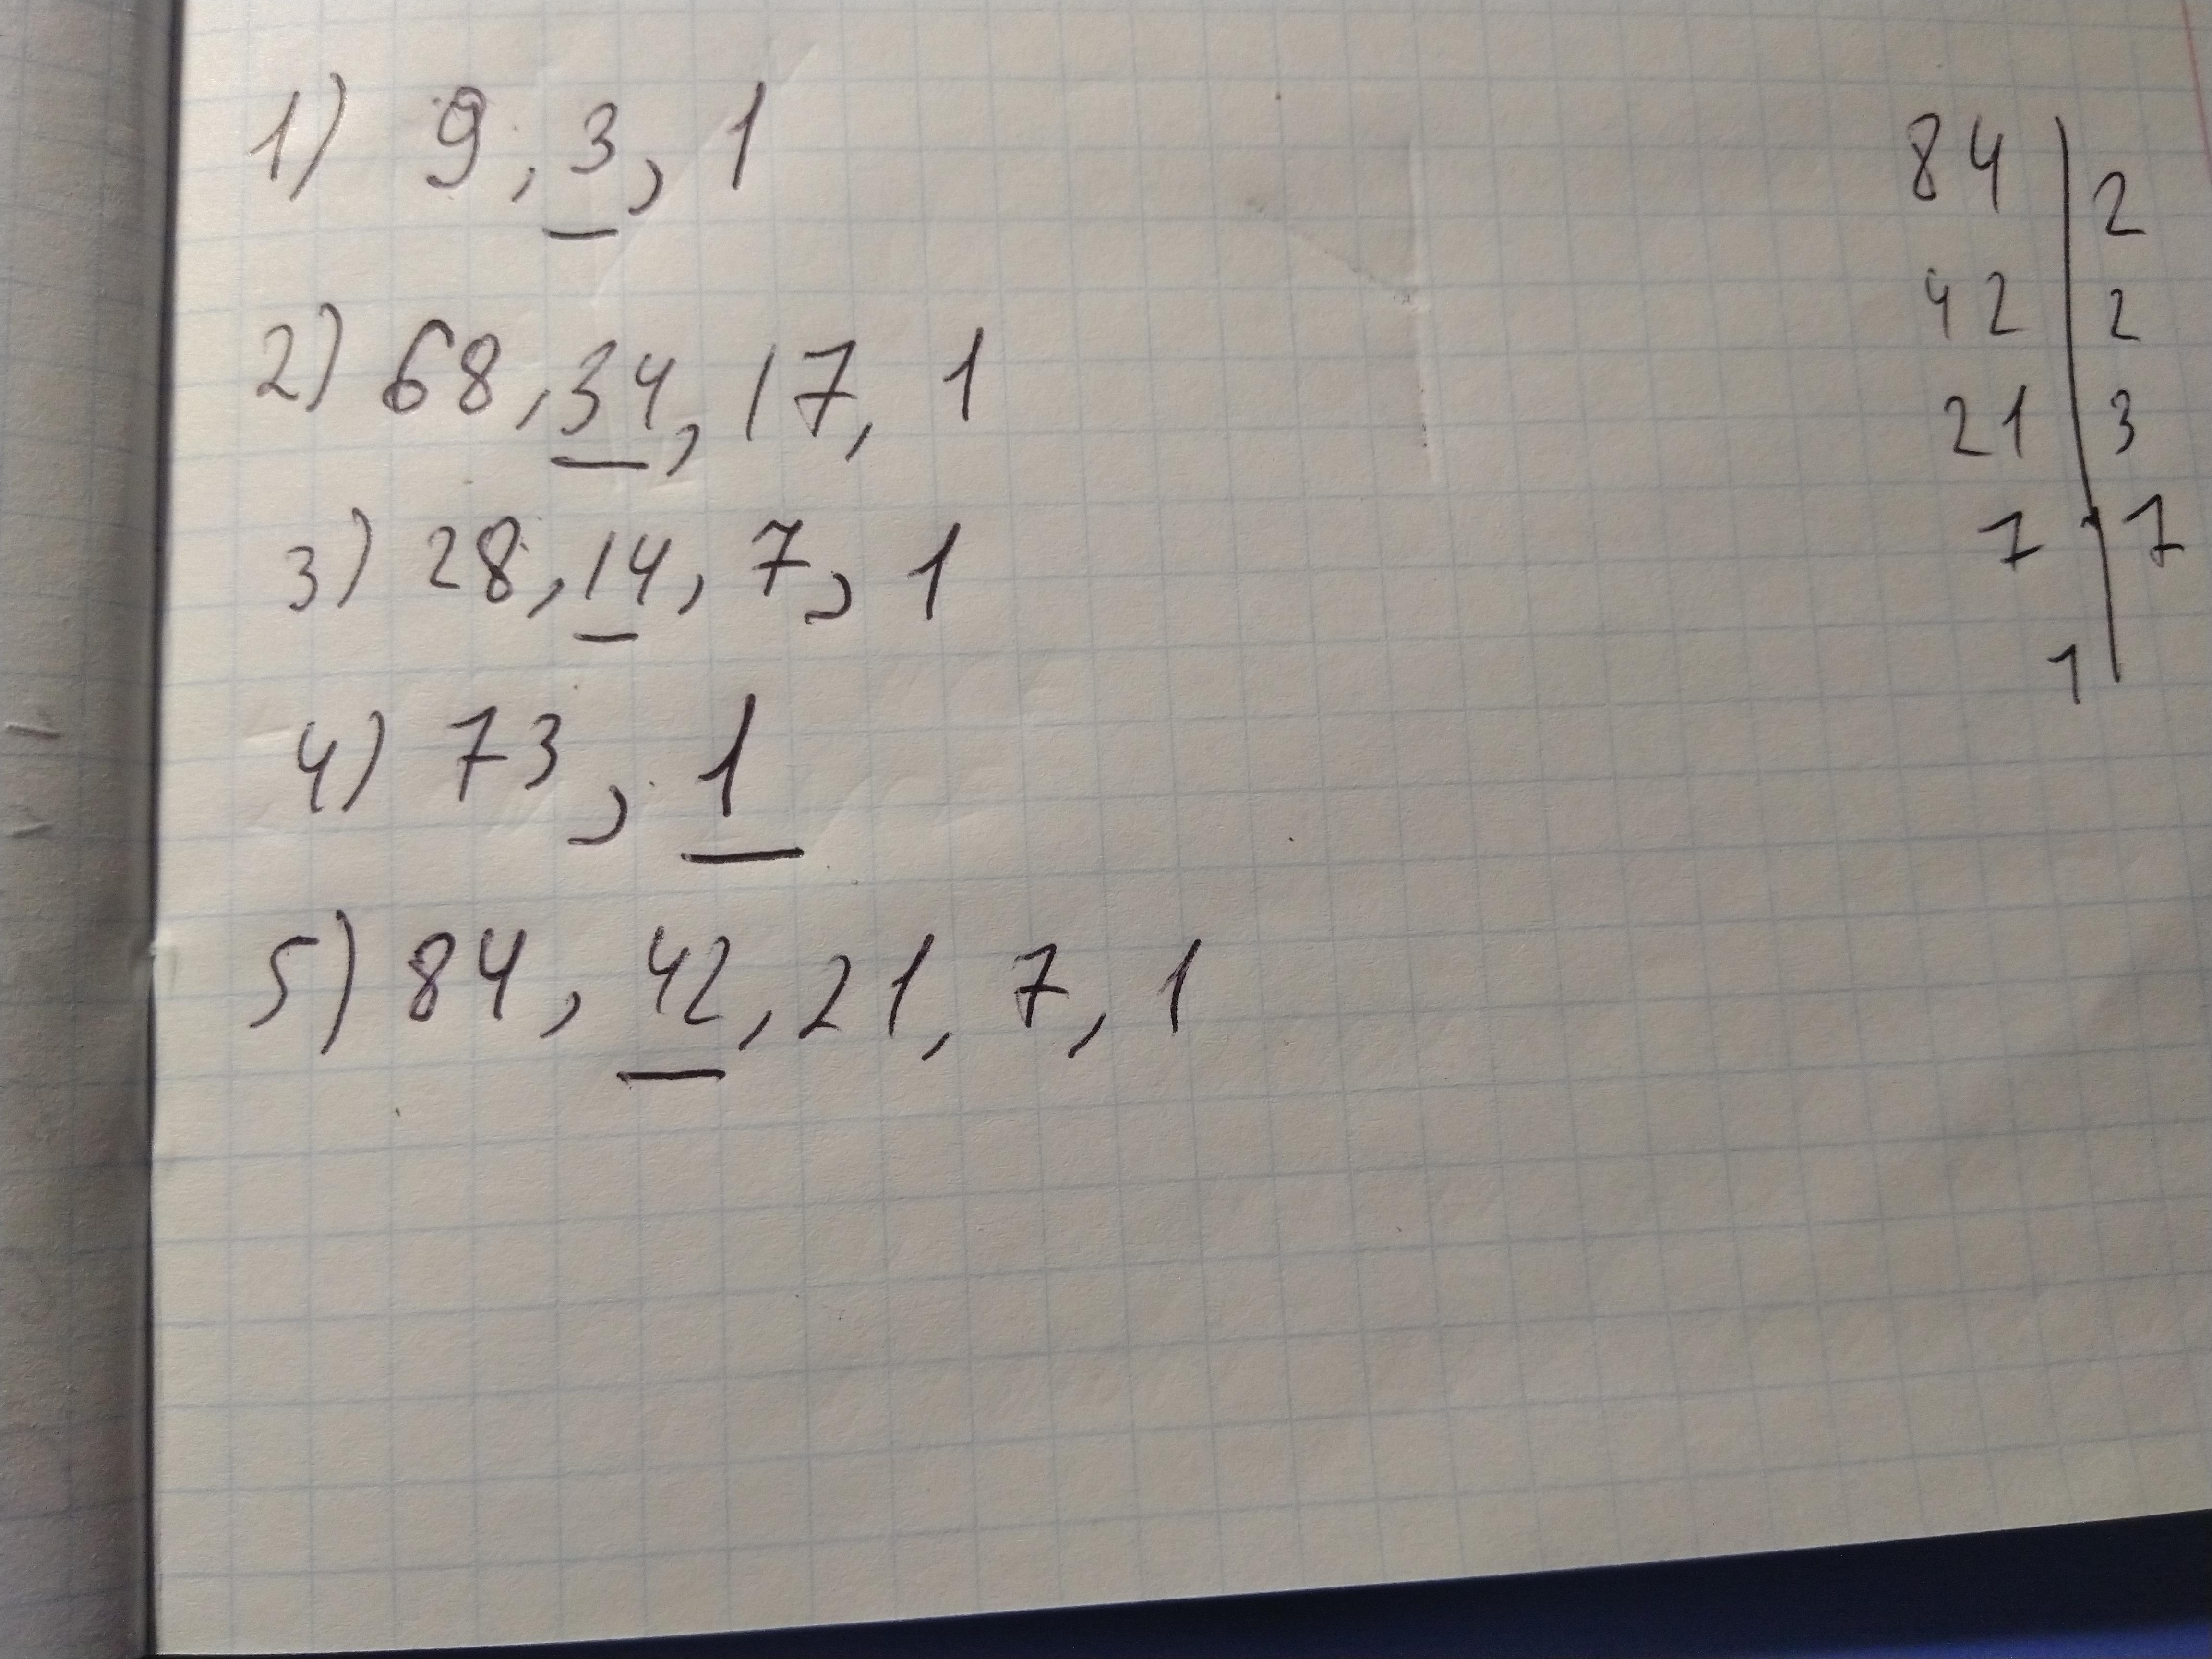 1) 9, 3, 1
2) 68, 34, 17, 1
3) 28, 14, 7, 1
4) 73, 1
5) 84, 42, 21, 7, 1
84 | 2
42 | 2
21 | 3
7 | 7
1 |